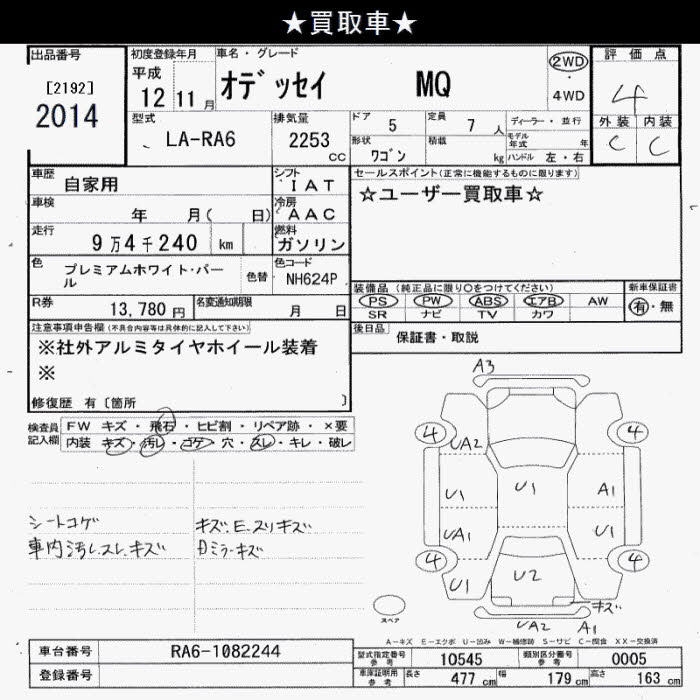 ★買取車★
出品番号
[2192]
2014
初度登録年月
平成
12年 11月
車名・グレード
オデッセイ MQ
2WD
・
4WD
評価点
4
外装 内装
C C
型式
LA-RA6
排気量
2253
CC
ドア 5
定員 7 人
形状 ワゴン
積載 kg
ディーラー・並行
モデル年式 年
ハンドル 左・右
車歴 自家用
シフト IAT
車検 年 月( 日)
冷房 AAC
走行 9万4千240 km
燃料 ガソリン
色 プレミアムホワイト・パール
色替
色コード NH624P
R券 13,780 円
名変通知期限 月 日
セールスポイント(正常に機能するものに限ります)
☆ユーザー買取車☆
装備品(純正品に限り○をつけてください)
PS PW ABS エアB AW
SR ナビ TV カワ
新車保証書
有・無
後日品 保証書・取説
注意事項申告欄(不具合内容等は具体的に記入して下さい)
※社外アルミタイヤホイール装着
※
修復歴 有〔箇所 〕
検査員記入欄
FW キズ・飛石・ヒビ割・リペア跡・×要
内装 キズ・汚レ・コゲ・穴・スレ・キレ・破レ
シートコゲ
車内汚レ.スレ.キズ
キズ.E.スリキズ
Dミラーキズ
A3
4 4
UA2
U1 U1 A1
UA1 U1
4 4
U1 U2
キズ
UA2 A1
スペア
A-キズ E-エクボ U-凹み W-補修跡 S-サビ C-腐食 XX-交換済
車台番号 RA6-1082244
登録番号
型式指定番号 参考 10545
類別区分番号 参考 0005
車庫証明用 参考 長さ 477 cm 幅 179 cm 高さ 163 cm